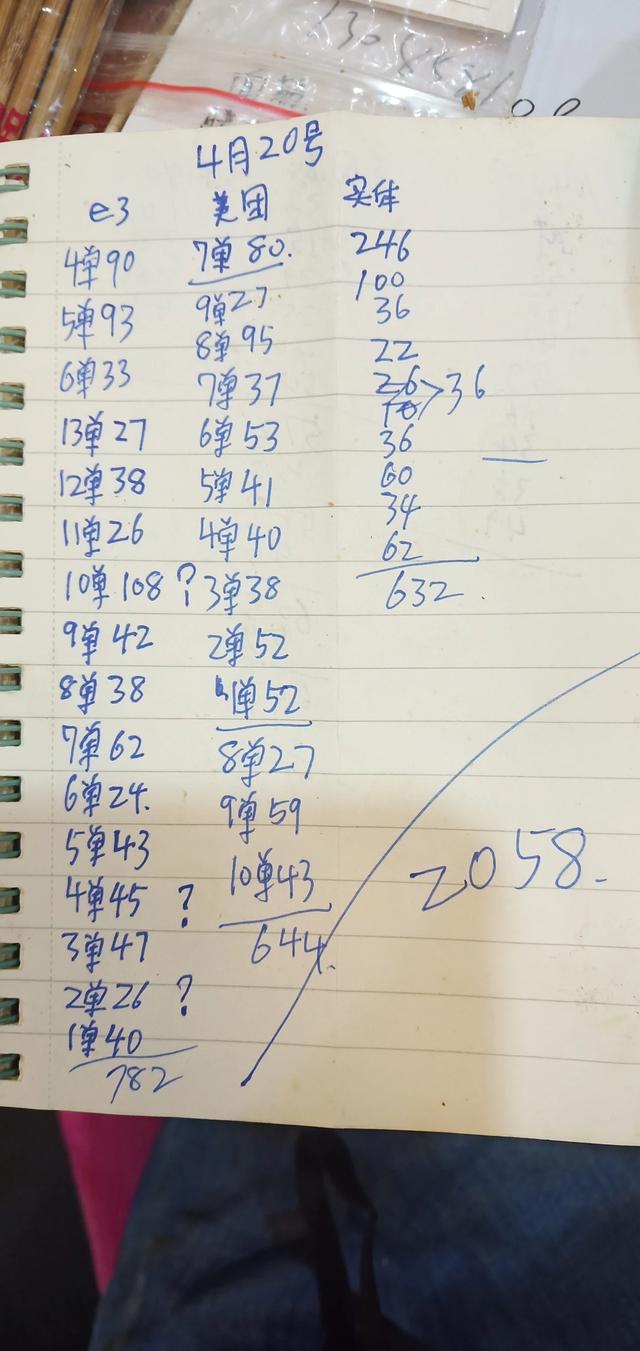 4月20号
e3
4单90
5单93
6单33
13单27
12单38
11单26
10单108 ?
9单42
8单38
7单62
6单24.
5单43
4单45 ?
3单47
2单26 ?
1单40
782
美团
7单80.
9单27
8单95
7单37
6单53
5单41
4单40
3单38
2单52
1单52
8单27
9单59
10单43
644.
实体
246
100
36
22
26
10 >36
36
60
34
62
632.
2058.